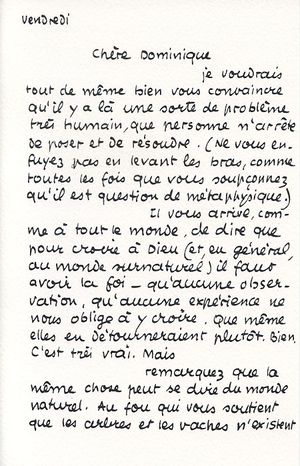 vendredi
Chère Dominique
je voudrais
tout de même bien vous convaincre
qu'il y a là une sorte de problème
très humain, que personne n'arrête
de poser et de résoudre. (Ne vous en-
fuyez pas en levant les bras, comme
toutes les fois que vous soupçonnez
qu'il est question de métaphysique.)
Il vous arrive, com-
me à tout le monde, de dire que
pour croire à Dieu (et, en général,
au monde surnaturel) il faut
avoir la foi – qu'aucune obser-
vation, qu'aucune expérience ne
nous oblige à y croire. Que même
elles en détourneraient plutôt. Bien.
C'est très vrai. Mais
remarquez que la
même chose peut se dire du monde
naturel. Au fou qui vous soutient
que les arbres et les vaches n'existent